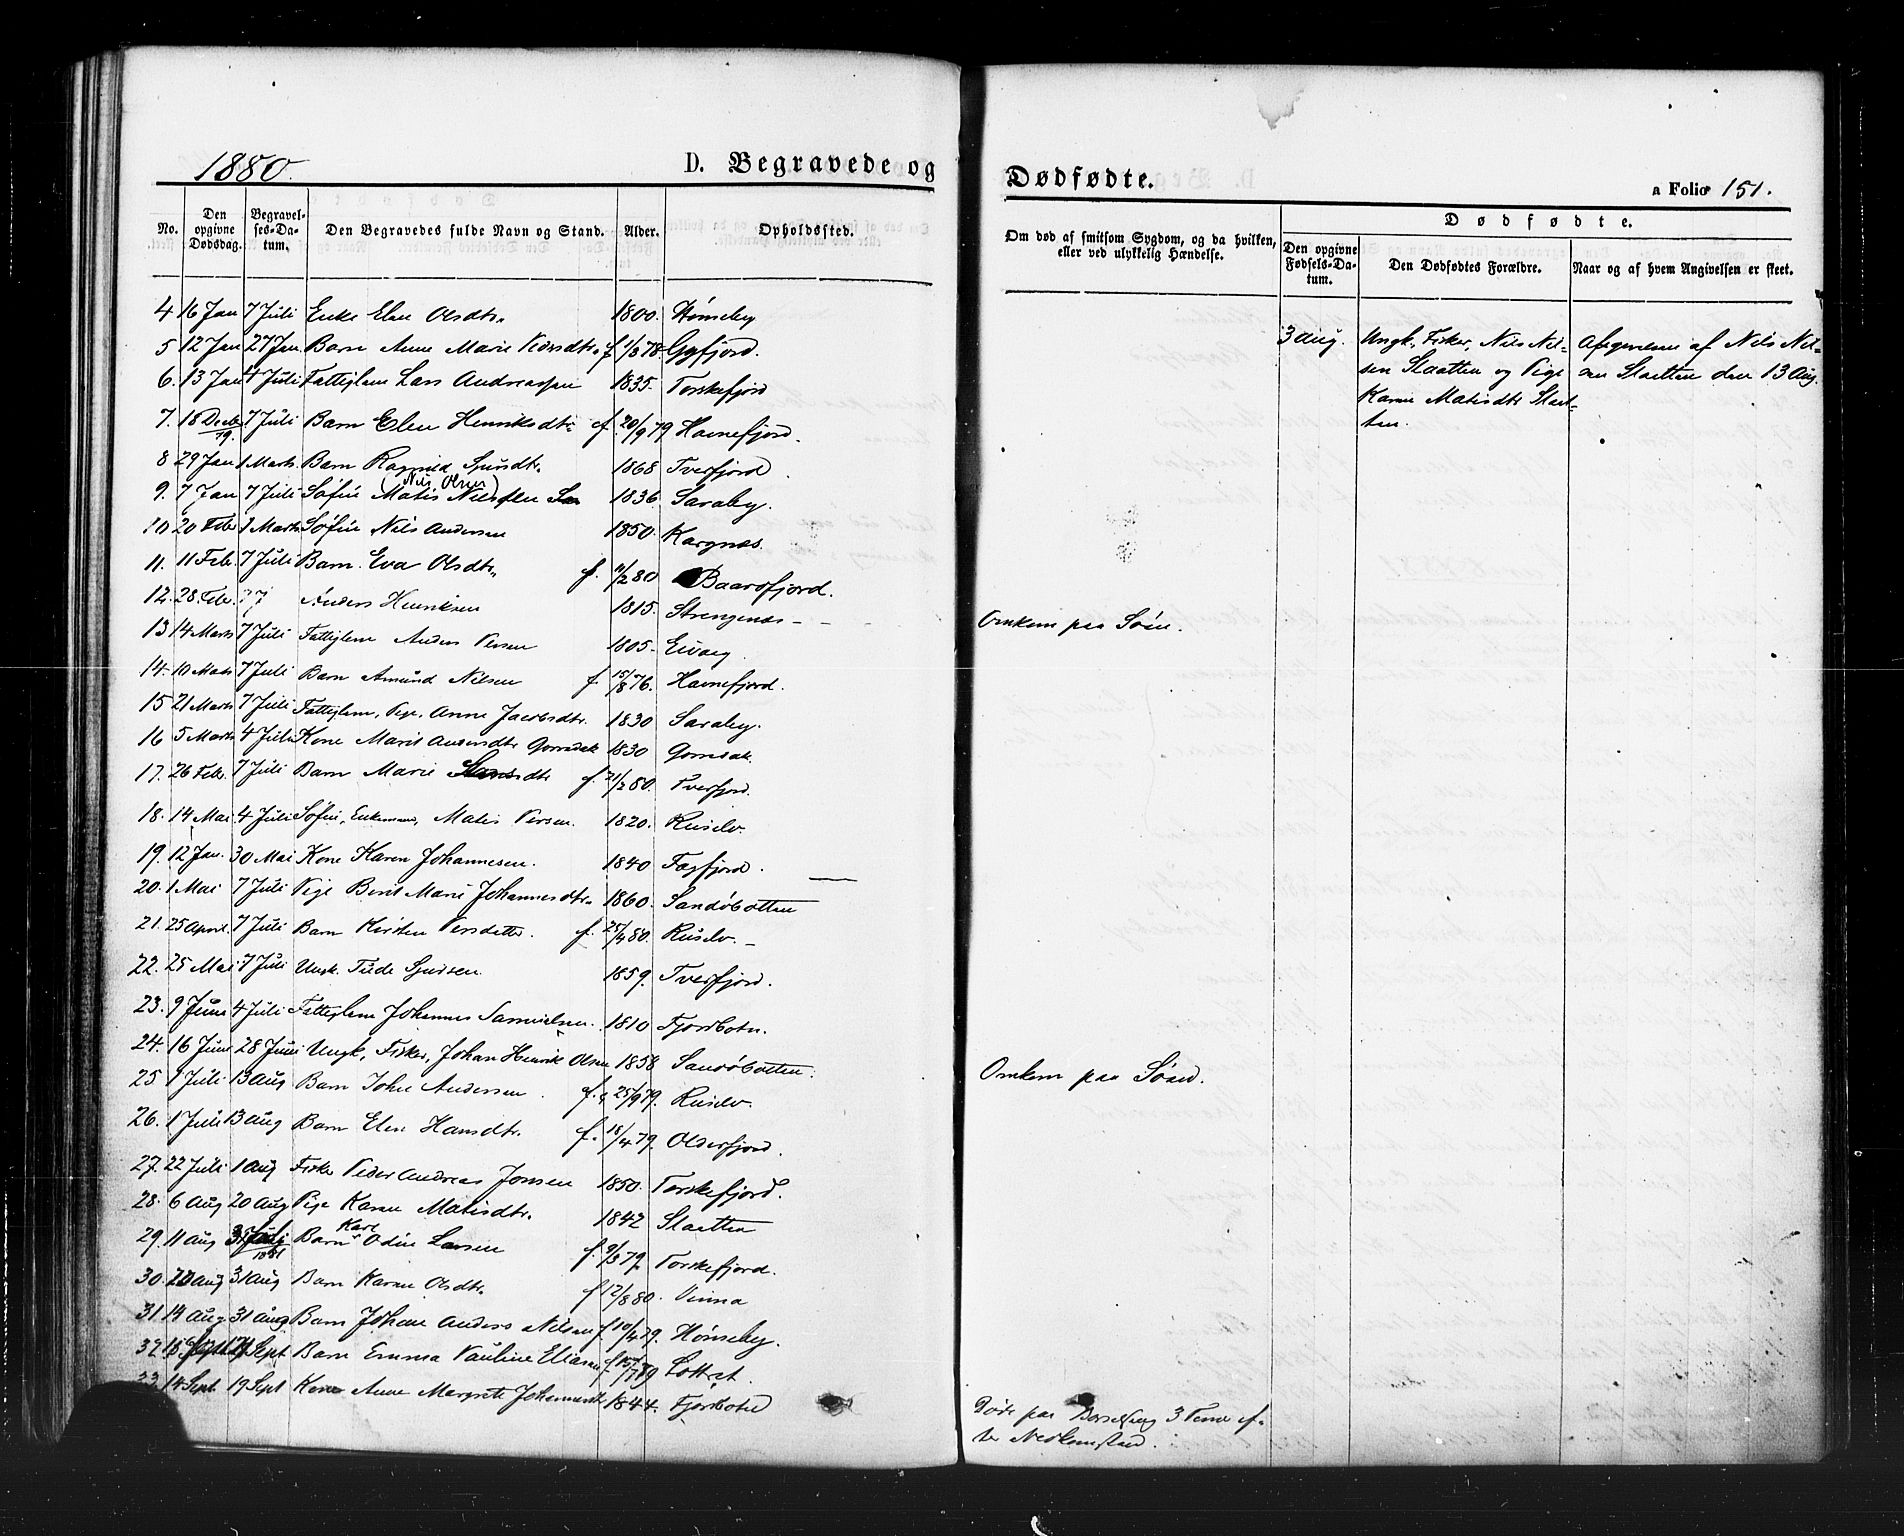 1880.
D. Begravede og
Dødfødte.
a Folio 151.
No.
Den opgivne Dødsdag.
Begravelses-Datum.
Den Begravedes fulde Navn og Stand.
Alder.
Opholdssted.
Om død af smitsom Sygdom, og da hvilken, eller ved ulykkelig Hændelse.
Dødfødte.
Den opgivne Fødsels-Datum.
Den Dødfødtes Forældre.
Naar og af hvem Angivelsen er skeet.
4 16 Jan 7 Juli Enke Elen Olsdtr. 1800. Hønseby
5 12 Jan 27 Jan Barn Anne Marie Pedersdtr. f 1/8 78 Gyfjord.
6. 13 Jan 4 Juli Fattiglem Lars Andreassen 1835. Torskefjord
7. 18 Decbr 79. 7 Juli Barn Elen Henriksdtr f 20/9 79 Havnefjord.
8 29 Jan 1 Marts Barn Ragnild Sjursdtr. 1868 Tverfjord
(Nils Olsen)
9. 7 Jan 7 Juli Søfin Matis Nilssen 1836 Saraby.
10 20 Febr 1 Marts Søfin Nils Andersen 1850. Kargnæs.
11. 11 Febr. 7 Juli Barn Eva Olsdtr. f. 11/2 80 Baarsfjord.
12. 28 Febr. Anders Henriksen 1815. Strengenæs Omkom paa Søen.
13 14 Marts 7 Juli Fattiglem Anders Persen 1805.
14. 10 Marts 7 Juli Barn Amund Nilsen f. 15/8 76. Havnefjord.
15 21 Marts 7 Juli Fattiglem, Pige, Anne Jacobsdtr. 1830 Saraby.
16 5 Marts 4 Juli Kone Marit Gomsdak 1830 Gomsdak.
17. 26 Febr. 7 Juli Barn Marie f. 21/2 80. Tverfjord.
18. 14 Mai 4 Juli Søfin, Enkemand, Matis Persen. 1820. Ruselv
19. 12 Jan. 30 Mai Kone Karen Johannesen. 1840 Fagfjord.
20. 1 Mai 7 Juli Pige Berit Marie Johannesdtr. 1860. Sandøbotten
21. 25 April. 7 Juli Barn Kirsten Persdatter. f. 25/4 80. Ruselv.
22. 25 Mai 7 Juli Ungk. Sjursen. 1859. Tverfjord.
23. 9 Juni 4 Juli Fattiglem Johannes Samuelsen. 1810 Fjordbotn.
24. 16 Juni 28 Juni Ungk, Fisker, Johan Henrik Olsen 1858 Sandøbotten. Omkom paa Søen.
25 1 Juli 13 Aug Barn John Andersen. f. 25/9 79. Ruselv.
26. 1 Juli 13 Aug Barn Elen Hansdtr. f. 18/4 79. Olderfjord.
27. 22 Juli 1 Aug Fisker Peder Andreas Jonsen 1850. Torskefjord.
28. 6 Aug 20 Aug Pige Karen Matisdtr. 1842 Slaatten
29. 11 Aug 31 Juli 1881 Barn Karl Odin Larsen f. 9/3 79. Torskefjord.
30. 20 Aug 31 Aug Barn Karen Olsdtr. f 12/8 80. Vinna
31 14 Aug 31 Aug Barn Johan Anders Nilsen f. 10/4 79. Hønseby.
32 Sept Barn Emma Pauline Eliasen f Lottret.
33. 14 Sept. 19 Sept Kone Anne Margrete Johannesdtr 1844. Fjordbotn
Døde paa 3 Timer efter Nedkomsten.
3 Aug.
Ungk, Fisker, Nils Nilsen Slaatten og Pige
Karen Matisdtr Slaatten.
Angivelsen af Nils Nilsen Slaatten den 13 Aug.